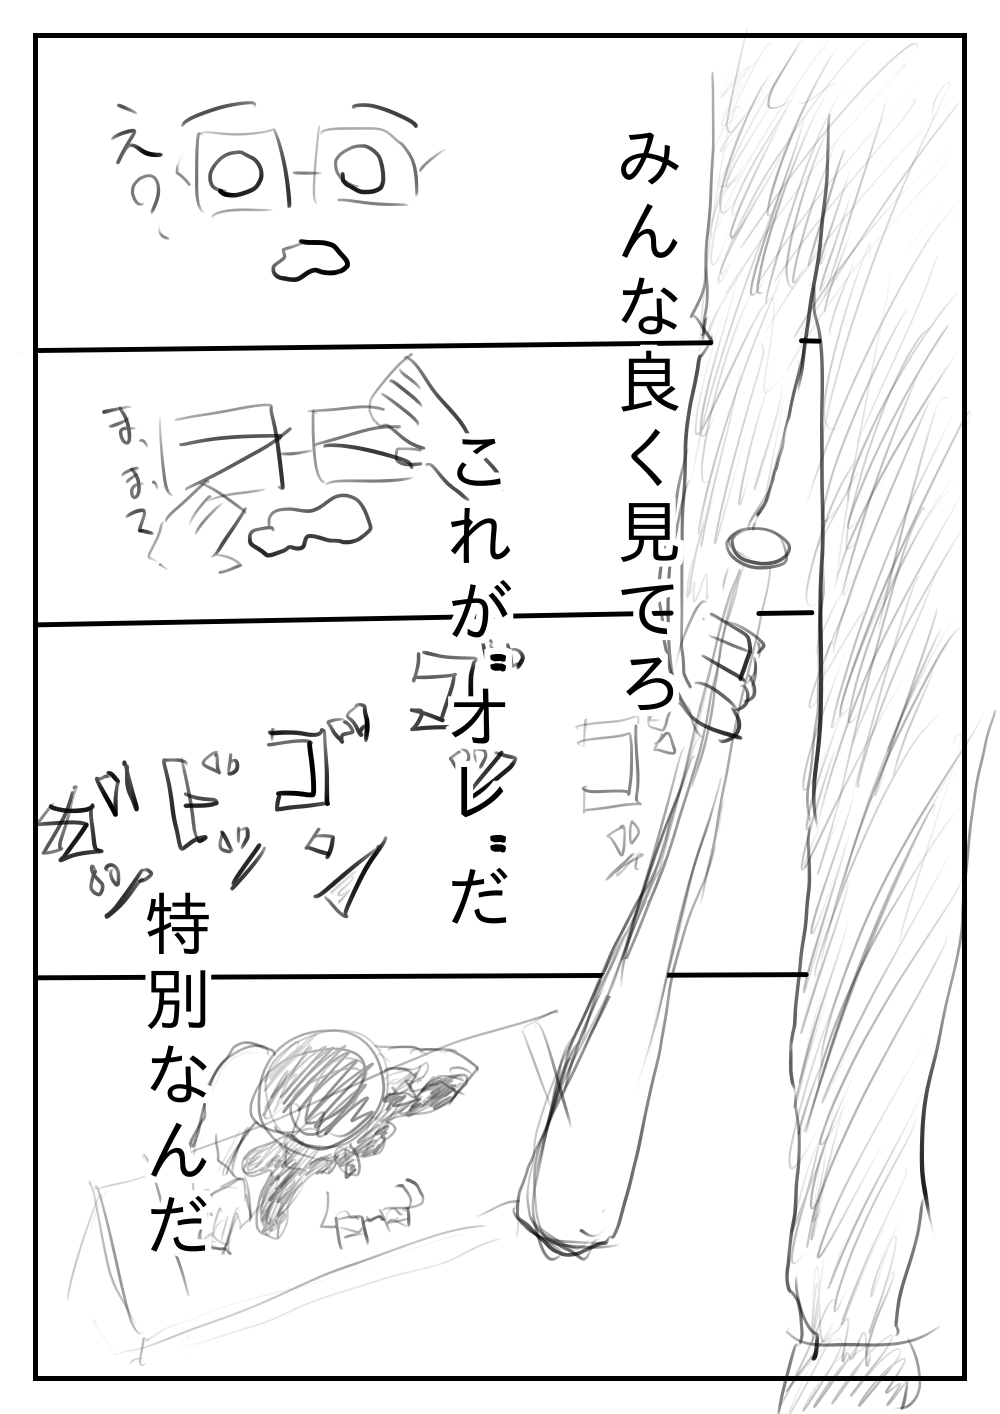 みんな良く見てろ
えっ
これが〝オレ〟だ
ま、
ま、
て
ゴッ
ゴッ
ゴッ
ドッ
ガッ
特別なんだ